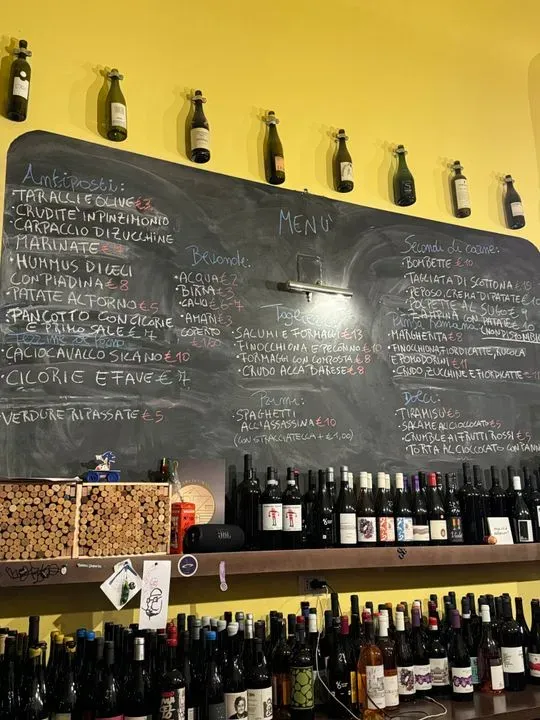 Antipasti:
• TARALLI E OLIVE €3
• CRUDITÈ IN PINZIMONIO
• CARPACCIO DI ZUCCHINE
MARINATE €
• HUMMUS DI CECI
CON PIADINA €8
• PATATE AL FORNO €5
• PANCOTTO CON CICORIE
E PRIMO SALE € 7
• CACIOCAVALLO SICANO €10
• CICORIE E FAVE € 7
VERDURE RIPASSATE €5
Bevande:
• ACQUA €2
• BIRRA €3
• CALICI €
• AMARI €3
COPERTO
€ 1,50
MENU'
SALUMI E FORMAGGI €13
• FINOCCHIONA E PECORINO €10
• FORMAGGI CON COMPOSTA €8
• CRUDO ALLA BARESE €8
Primi:
• SPAGHETTI
ALL'ASSASSINA €10
(CON STRACCIATELLA + €1,00)
Secondi di carne:
• BOMBETTE €10
• TAGLIATA DI SCOTTONA €15
• PEPOSO, CREMA DI PATATE €10
• POLPETTE AL SUGO € 9
Pinsa Romana
• MARGHERITA €8
• FINOCCHIONA FIORDILATTE, RUCOLA
E POMODORINI €11
• CRUDO ZUCCHINE E FIORDILATTE €
Dolci:
TIRAMISU' €5
• SALAME AL CIOCCOLATO €5
• CRUMBLE AI FRUTTI ROSSI €5
• TORTA AL CIOCCOLATO CON
JBL